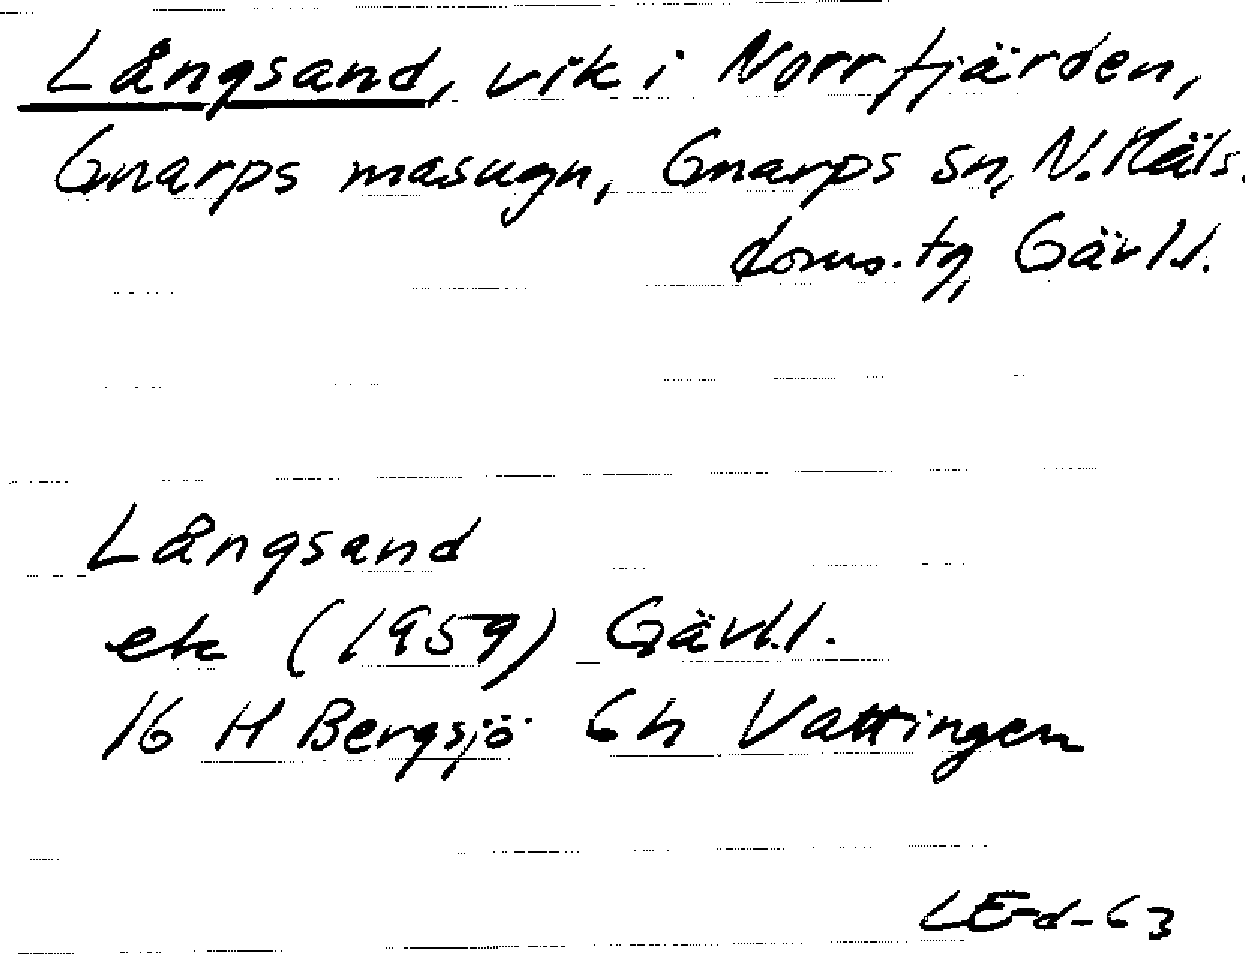 Långsand, vik i Norrfjärden,
Gnarps masugn, Gnarps sn, N. Häls.
doms. tg, Gävl.l.
Långsand
ek (1959) Gävl.l.
16 H Bergsjö 6h Vattingen
LEd-63